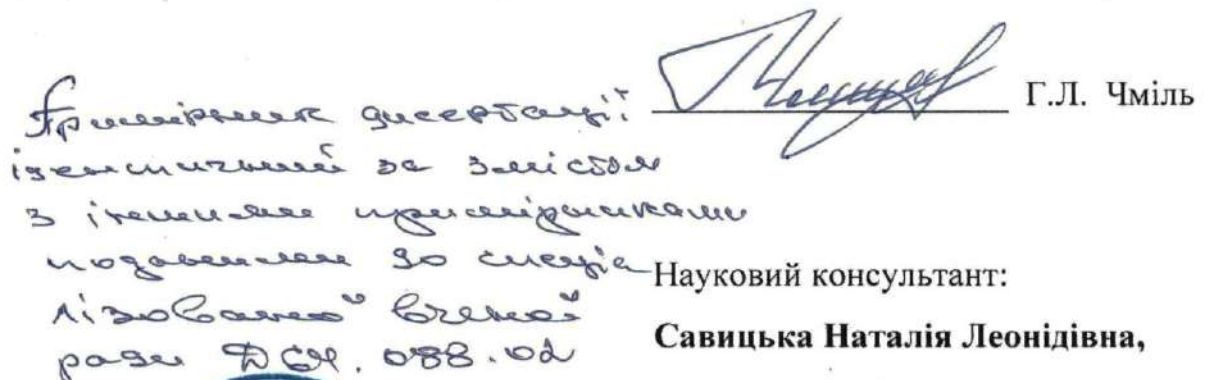 Г.Л. Чміль
Примірник дисертації
ідентичний за змістом
з іншими примірниками
поданими до спеціа
лізованої вченої
ради Д64.088.02
Науковий консультант:
Савицька Наталія Леонідівна,